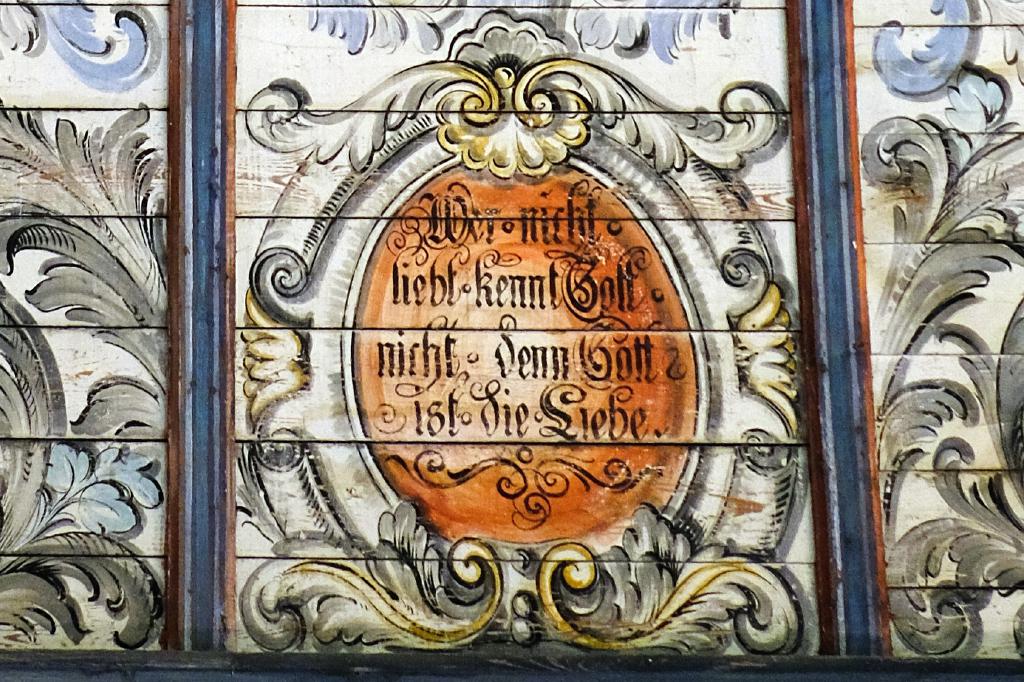 Wer · nicht ·
liebt · kennt Gott ·
nicht · denn Gott
ist · die · Liebe.